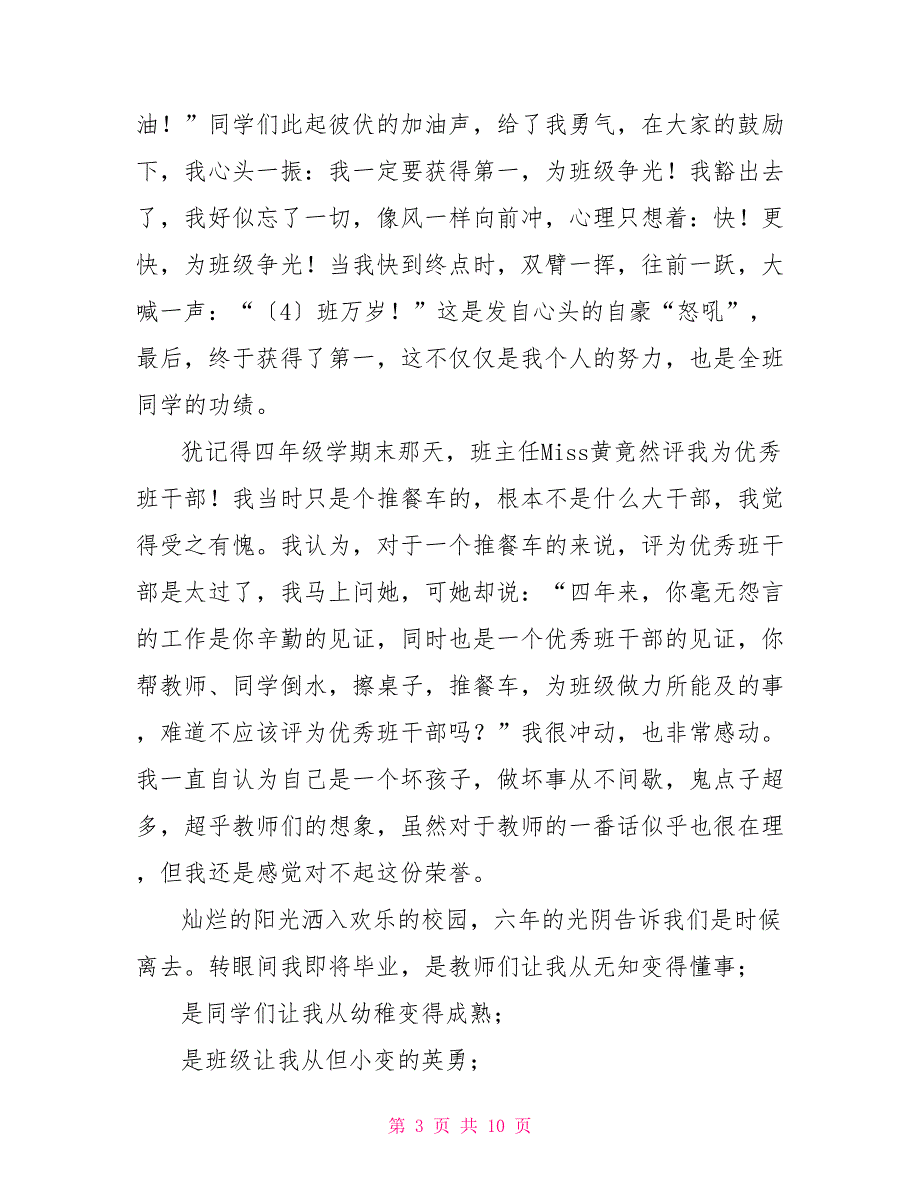 油！”同学们此起彼伏的加油声，给了我勇气，在大家的鼓励
下，我心头一振：我一定要获得第一，为班级争光！我豁出去
了，我好似忘了一切，像风一样向前冲，心理只想着：快！更
快，为班级争光！当我快到终点时，双臂一挥，往前一跃，大
喊一声：“〔4〕班万岁！”这是发自心头的自豪“怒吼”，
最后，终于获得了第一，这不仅仅是我个人的努力，也是全班
同学的功绩。
犹记得四年级学期末那天，班主任Miss黄竟然评我为优秀
班干部！我当时只是个推餐车的，根本不是什么大干部，我觉
得受之有愧。我认为，对于一个推餐车的来说，评为优秀班干
部是太过了，我马上问她，可她却说：“四年来，你毫无怨言
的工作是你辛勤的见证，同时也是一个优秀班干部的见证，你
帮教师、同学倒水，擦桌子，推餐车，为班级做力所能及的事
，难道不应该评为优秀班干部吗？”我很冲动，也非常感动。
我一直自认为自己是一个坏孩子，做坏事从不间歇，鬼点子超
多，超乎教师们的想象，虽然对于教师的一番话似乎也很在理
，但我还是感觉对不起这份荣誉。
灿烂的阳光洒入欢乐的校园，六年的光阴告诉我们是时候
离去。转眼间我即将毕业，是教师们让我从无知变得懂事；
是同学们让我从幼稚变得成熟；
是班级让我从但小变的英勇；
第 3 页 共 10 页